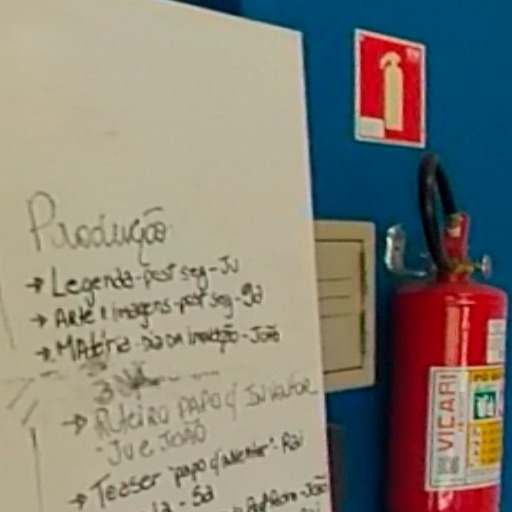 Produção
→ Legenda - post seg - Ju
→ Arte e imagens - post seg - Sá
→ Matéria - Dia da inovação - João
→ Roteiro papo c/ Inventor
- Ju e João
→ Teaser "papo c/ inventor" - Rai
- Sá
João
VICARI